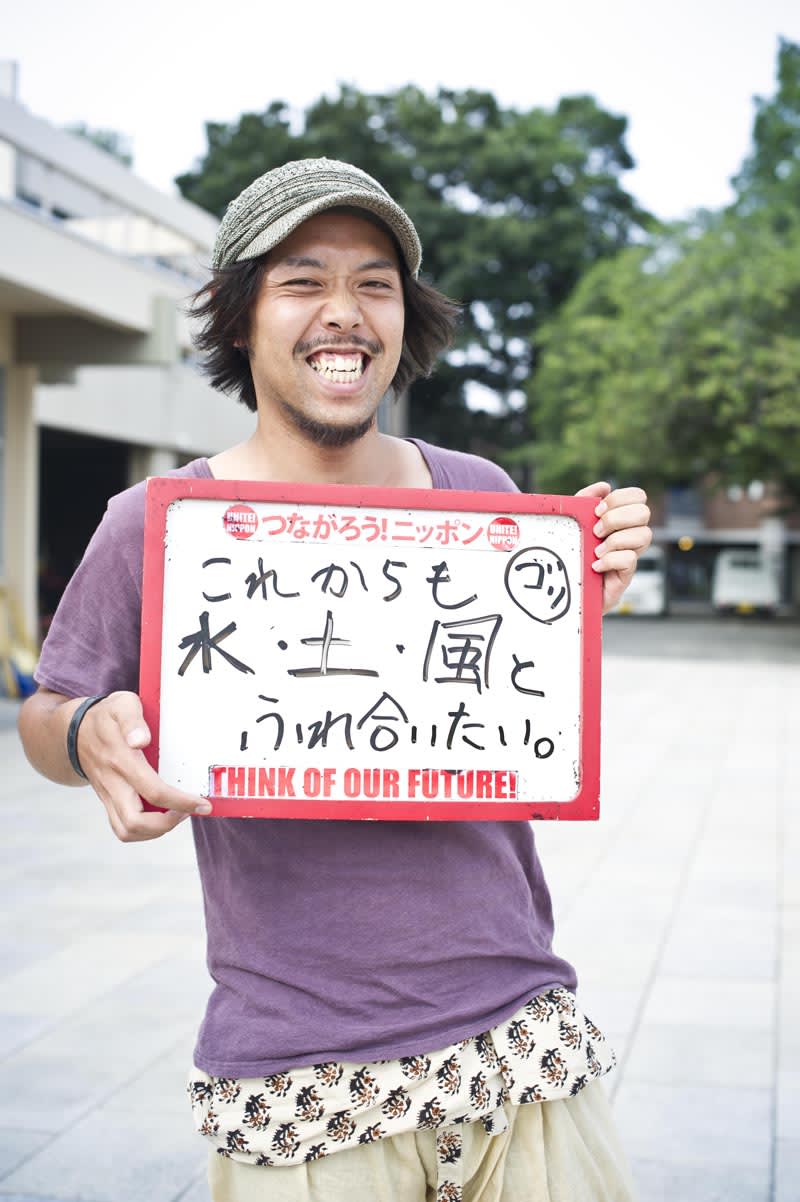 UNITE! NIPPON つながろう!ニッポン UNITE! NIPPON
これからも ゴリ
水・土・風と
ふれ合いたい。
THINK OF OUR FUTURE!